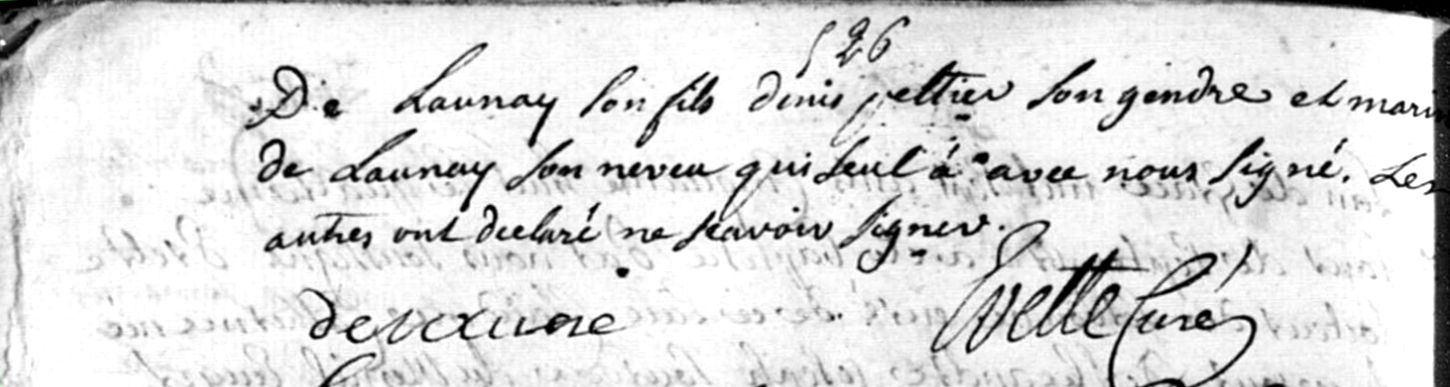 526
De Launay son fils denis peltier son gendre et marin
de Launay son neveu qui seul á avec nous signé. Les
autres ont declaré ne scavoir signer.
curé